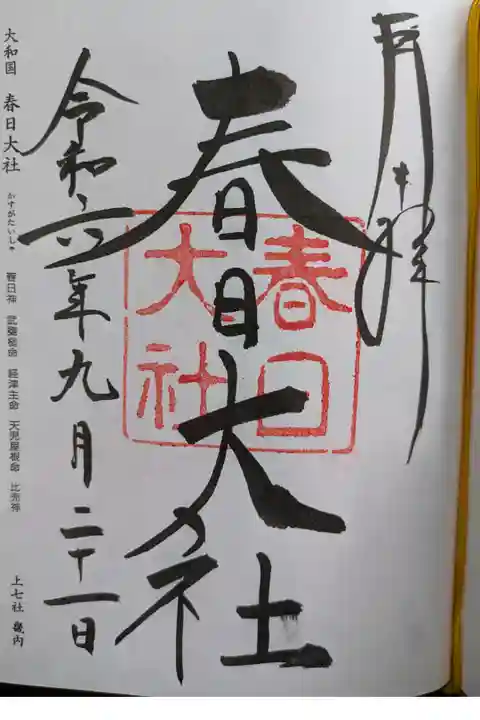 奉拝
春日大社
春日大社
令和六年九月二十一日
大和国 春日大社 かすがたいしゃ 春日神 武甕槌命 経津主命 天児屋根命 比売神 上七社 畿内